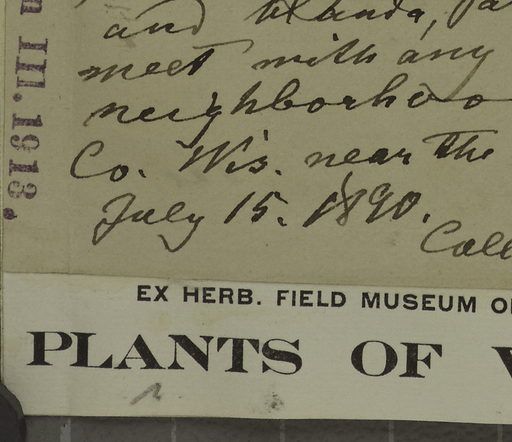 and
meet with any
neighborhoo
Co. Wis. near the
July 15. 1890.
Coll
III.1913.
EX HERB. FIELD MUSEUM O
PLANTS OF